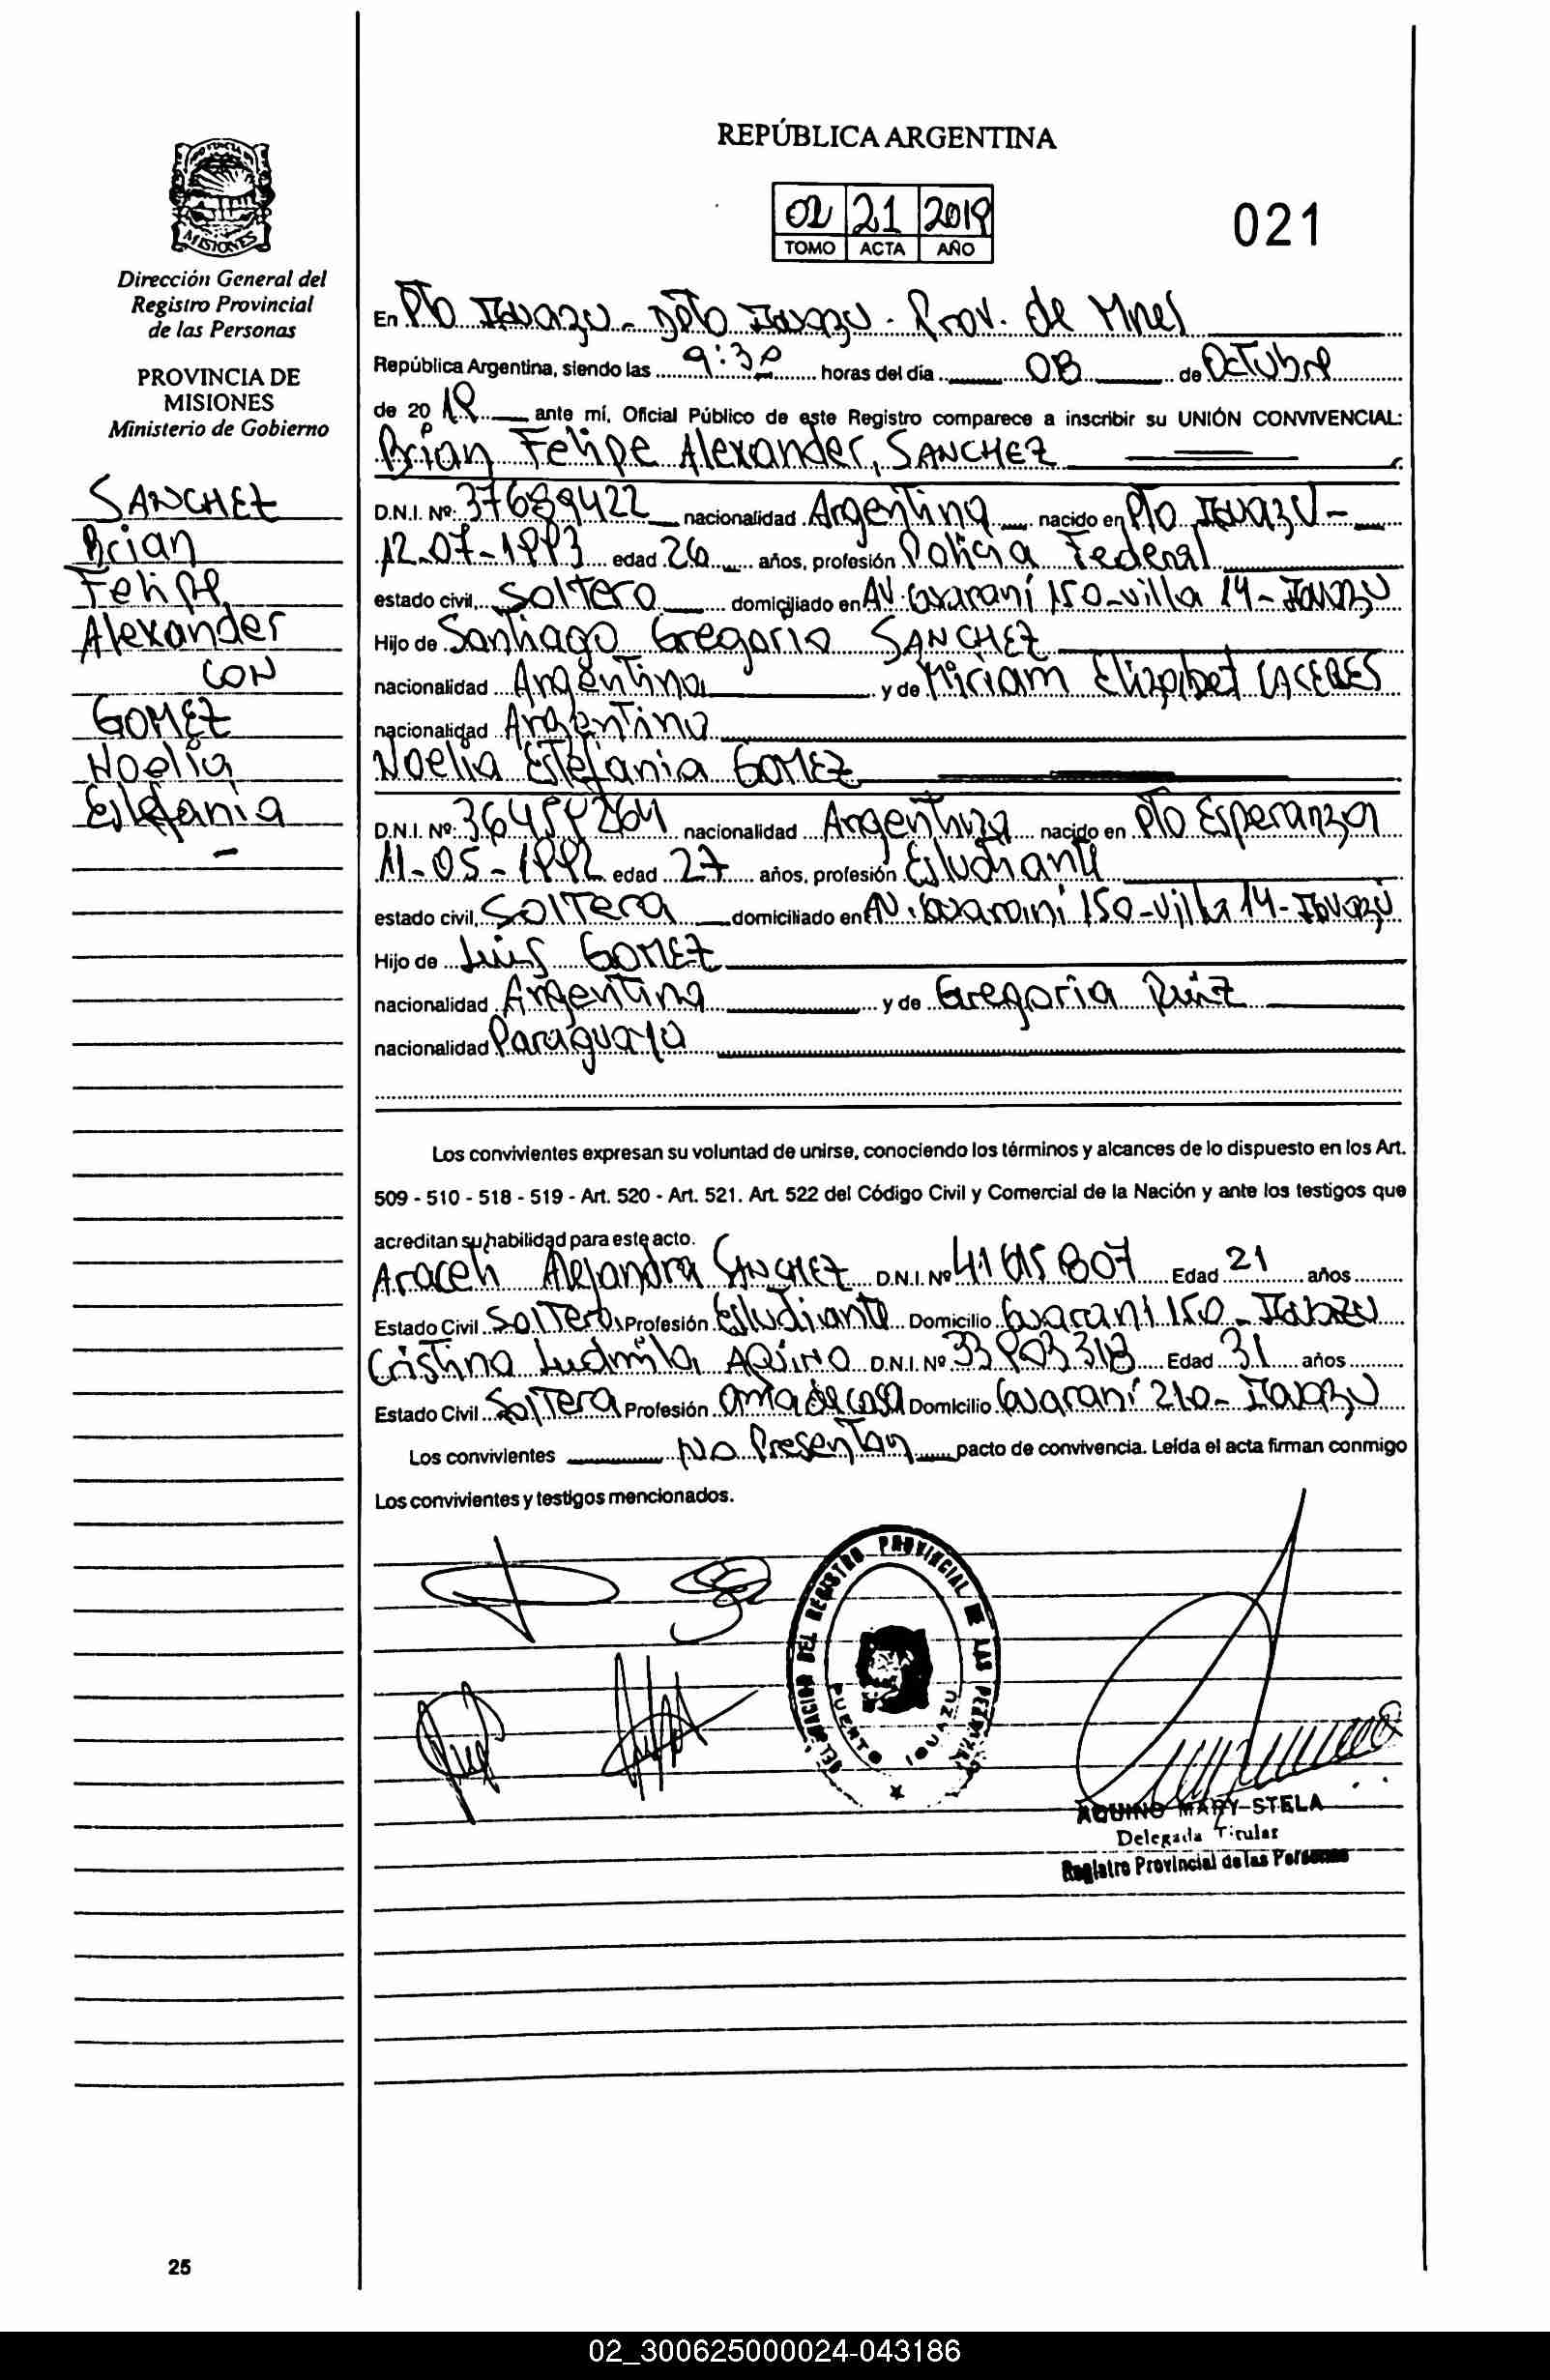 REPÚBLICA ARGENTINA
02 21 2019
TOMO ACTA AÑO
021
MISIONES
Dirección General del
Registro Provincial
de las Personas
PROVINCIA DE
MISIONES
Ministerio de Gobierno
SANCHEZ
Brian
Felipe
Alexander
CON
GOMEZ
Noelia
Estefania
-
En Pto Iguazu - Dpto Iguazu - Prov. de Mnes
República Argentina, siendo las 9:30 horas del día 08 de Octubre
de 2019 ante mí, Oficial Público de este Registro comparece a inscribir su UNIÓN CONVIVENCIAL:
Brian Felipe Alexander, SANCHEZ
D.N.I. Nº: 37689422 nacionalidad Argentina nacido en Pto Iguazu -
12-07-1993 edad 26 años, profesión Policia Federal
estado civil, Soltero domiciliado en AV. Guaraní 150-villa 14-Iguazu
Hijo de Santiago Gregorio SANCHEZ
nacionalidad Argentina y de Miriam Elizabet CACERES
nacionalidad Argentina
Noelia Estefania GOMEZ
D.N.I. Nº: nacionalidad Argentina nacido en Pto Esperanza
11-05-1992 edad 27 años, profesión Estudiante
estado civil, Soltera domiciliado en AV. Guaraní 150-villa 14-Iguazú
Hijo de Luis GOMEZ
nacionalidad Argentina y de Gregoria Ruiz
nacionalidad Paraguaya
Los convivientes expresan su voluntad de unirse, conociendo los términos y alcances de lo dispuesto en los Art.
509 - 510 - 518 - 519 - Art. 520 - Art. 521. Art. 522 del Código Civil y Comercial de la Nación y ante los testigos que
acreditan su habilidad para este acto.
Araceli Alejandra SANCHEZ D.N.I. Nº 41615807 Edad 21 años
Estado Civil Soltera Profesión Estudiante Domicilio Guaraní 150 - Iguazu
Cristina Ludmila AQUINO D.N.I. Nº Edad 31 años
Estado Civil Soltera Profesión ama de casa Domicilio Guaraní 210 - Iguazu
Los convivientes No Presentan pacto de convivencia. Leída el acta firman conmigo
Los convivientes y testigos mencionados.
DELEGACION DEL REGISTRO PROVINCIAL DE LAS PERSONAS
PUERTO IGUAZU
AQUINO MARY STELA
Delegada Titular
Registro Provincial de las Personas
25
02_300625000024-043186